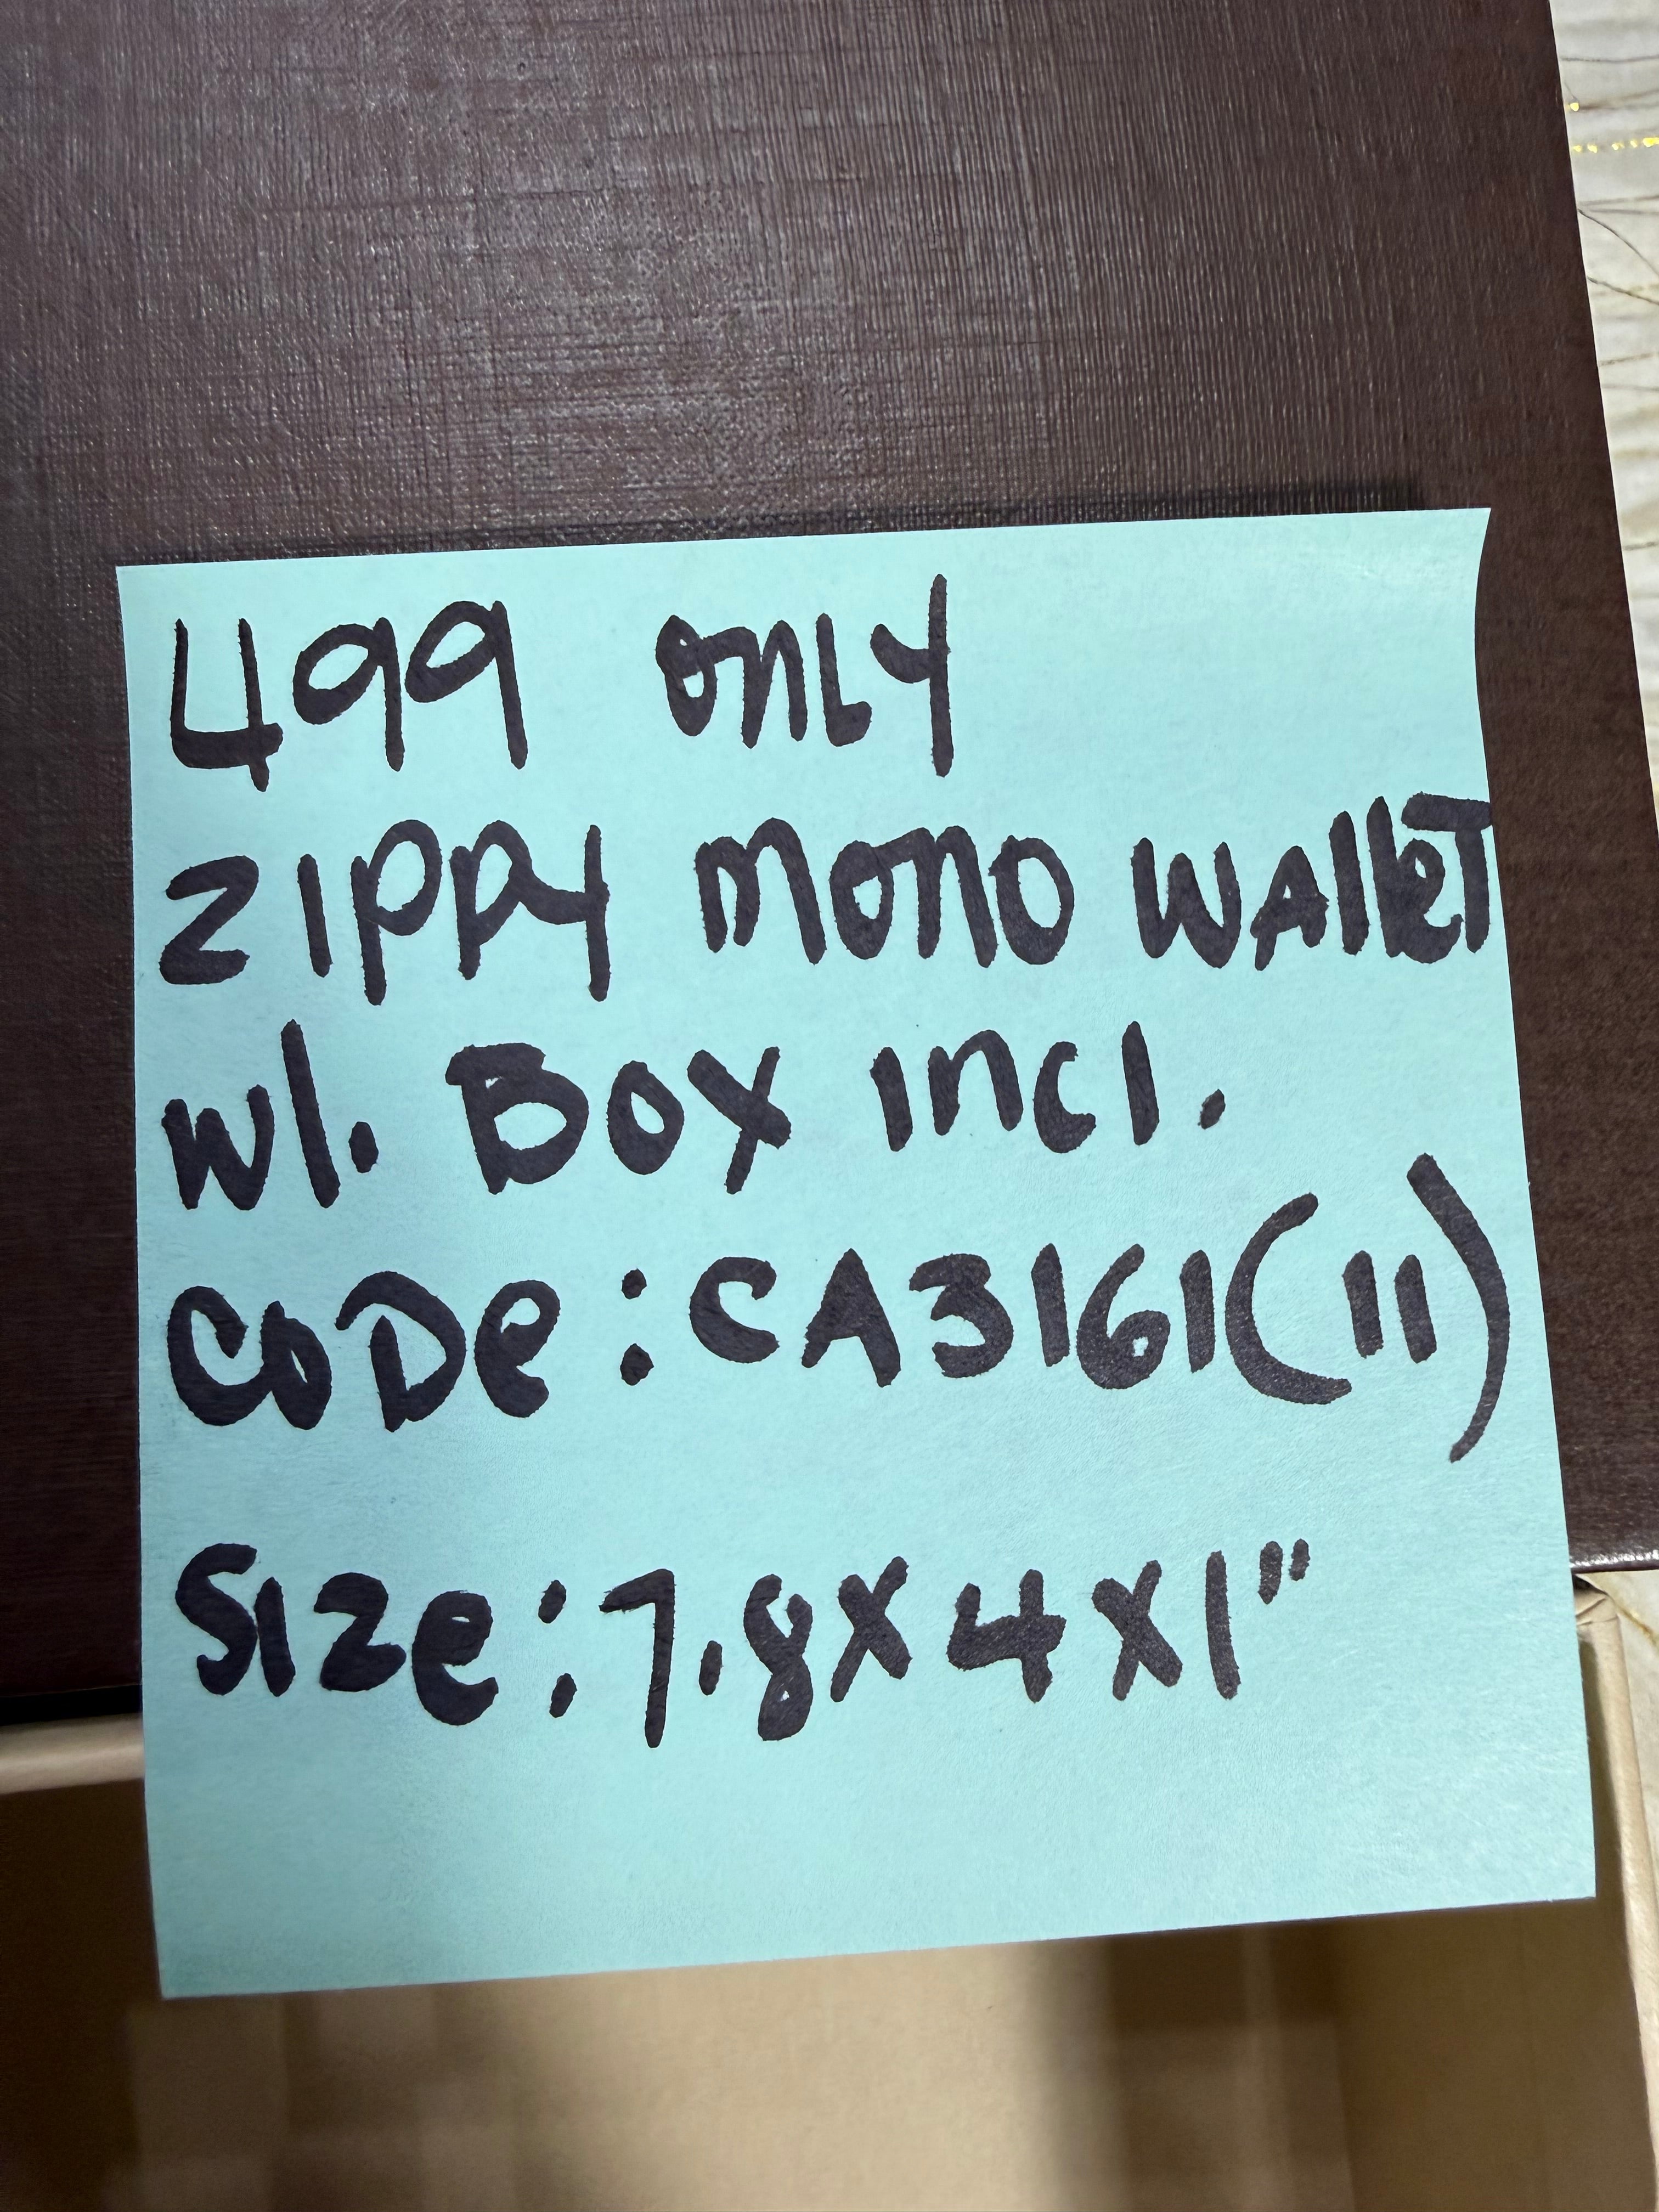 499 only
Zippy mono wallet
w/. Box incl.
Code : CA3161(11)
Size : 7.8 x 4 x 1"